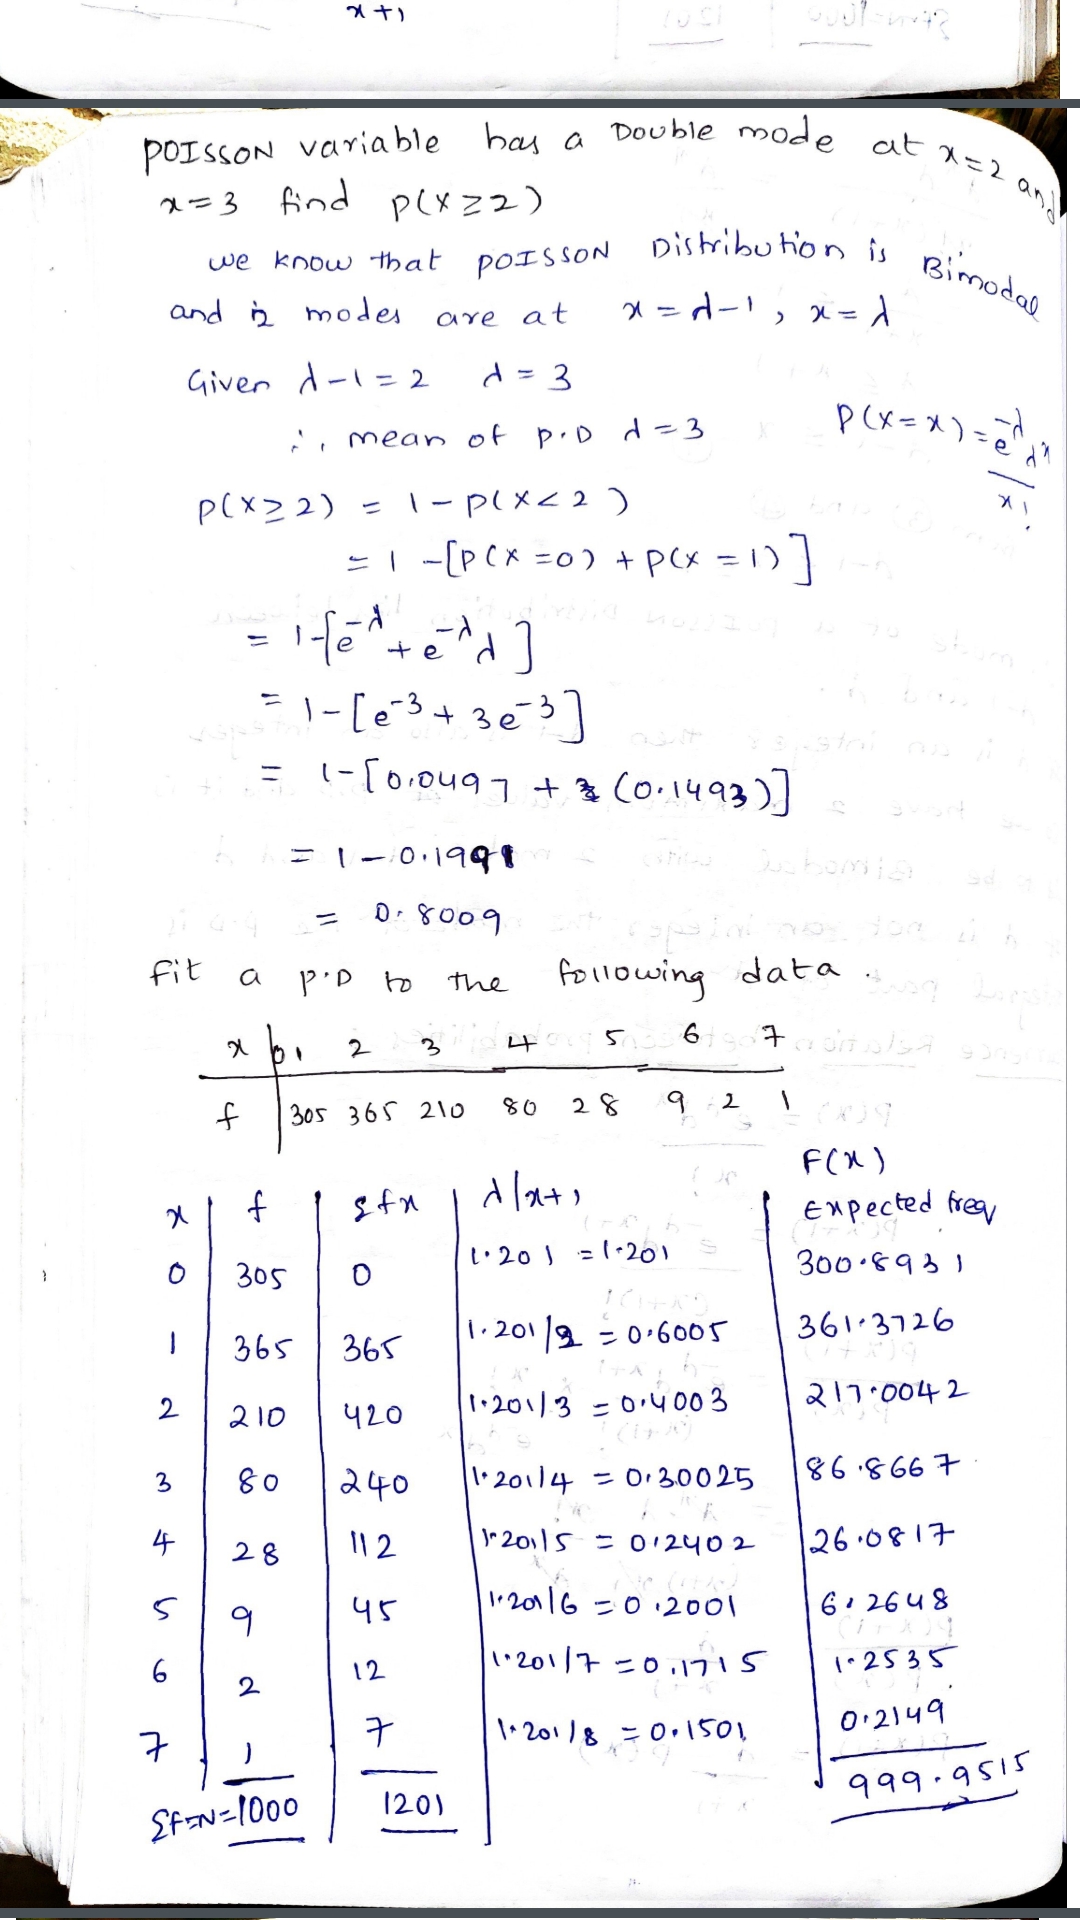 x+1
POISSON variable has a Double mode at x=2 and
x=3 find P(X≥2)
we know that POISSON Distribution is Bimodal
and 2 modes are at x=λ-1, x=λ
Given λ-1=2 λ=3
∴, mean of P.D λ=3
P(X=x)=e^-λ λ^x / x!
P(X≥2) = 1-P(X<2)
= 1-[P(X=0)+P(X=1)]
= 1-[e^-λ+e^-λ λ]
= 1-[e^-3+3e^-3]
= 1-[0.0497+(0.1493)]
= 1-0.1991
= 0.8009
Fit a P.D to the following data.
x 0 1 2 3 4 5 6 7
f 305 365 210 80 28 9 2 1
x f Σfx λ/x+1 F(x) Expected freq
0 305 0 1.201 =1.201 300.8931
1 365 365 1.201/2 =0.6005 361.3726
2 210 420 1.201/3 =0.4003 217.0042
3 80 240 1.201/4 =0.30025 86.8667
4 28 112 1.201/5 =0.2402 26.0817
5 9 45 1.201/6 =0.2001 6.2648
6 2 12 1.201/7 =0.1715 1.2535
7 1 7 1.201/8 =0.1501 0.2149
Σf=N=1000 1201 999.9515